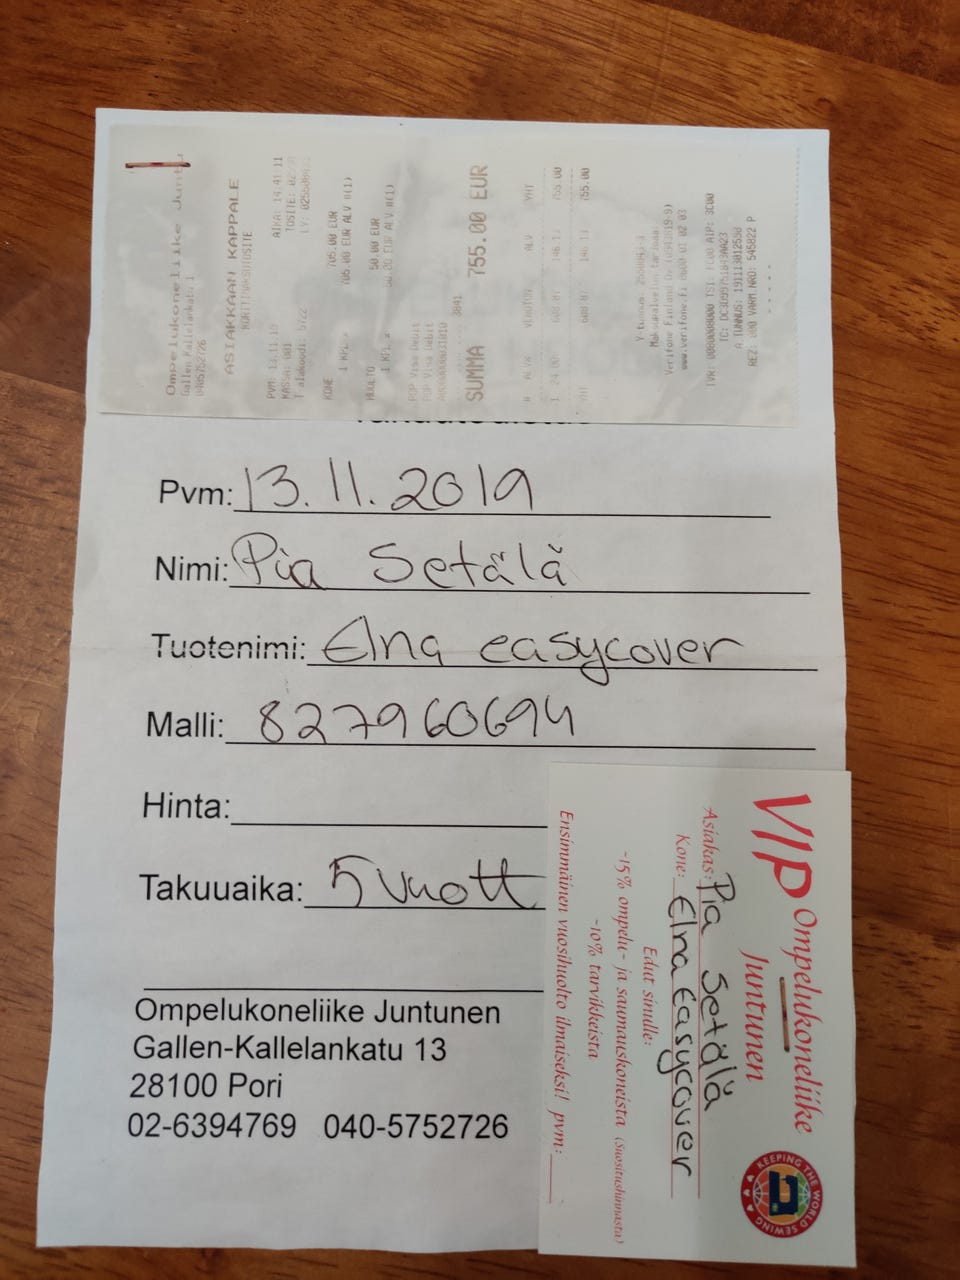 Ompelukoneliike Juntu
Gallen Kallelankatu 1
0405752726
ASIAKKAAN KAPPALE
KORTTIMAKSUTOSITE
PVM: 13.11.19 AIKA: 14.41.11
KASSA: 001 TOSITE:
KONE 705.00 EUR
1 KPL 705.00 EUR ALV
HUOLTO 50.00 EUR
1 KPL 50.00 EUR ALV
POP Visa Debit
POP Visa Debit
3841
SUMMA 755.00 EUR
ALV% VEROTON ALV YHT
1 24.00 608.87 146.13 755.00
YHT 608.87 146.13 755.00
Maksupalvelun tarjoaa:
Verifone Finland Oy
www.verifone.fi 0600 01 02 03
A TUNNUS: 191113012550
VARM.NRO: 545822 P
Pvm: 13.11.2019
Nimi: Pia Setälä
Tuotenimi: Elna easycover
Malli: 827960694
Hinta:
Takuuaika: 5 vuott
Ompelukoneliike Juntunen
Gallen-Kallelankatu 13
28100 Pori
02-6394769 040-5752726
VIP Ompelukoneliike
Juntunen
Asiakas: Pia Setälä
Kone: Elna Easycover
Edut sinulle:
-15% ompelu- ja saumauskoneista (Suositushinnasta)
-10% tarvikkeista
Ensimmäinen vuosihuolto ilmaiseksi! pvm:
KEEPING THE WORLD SEWING